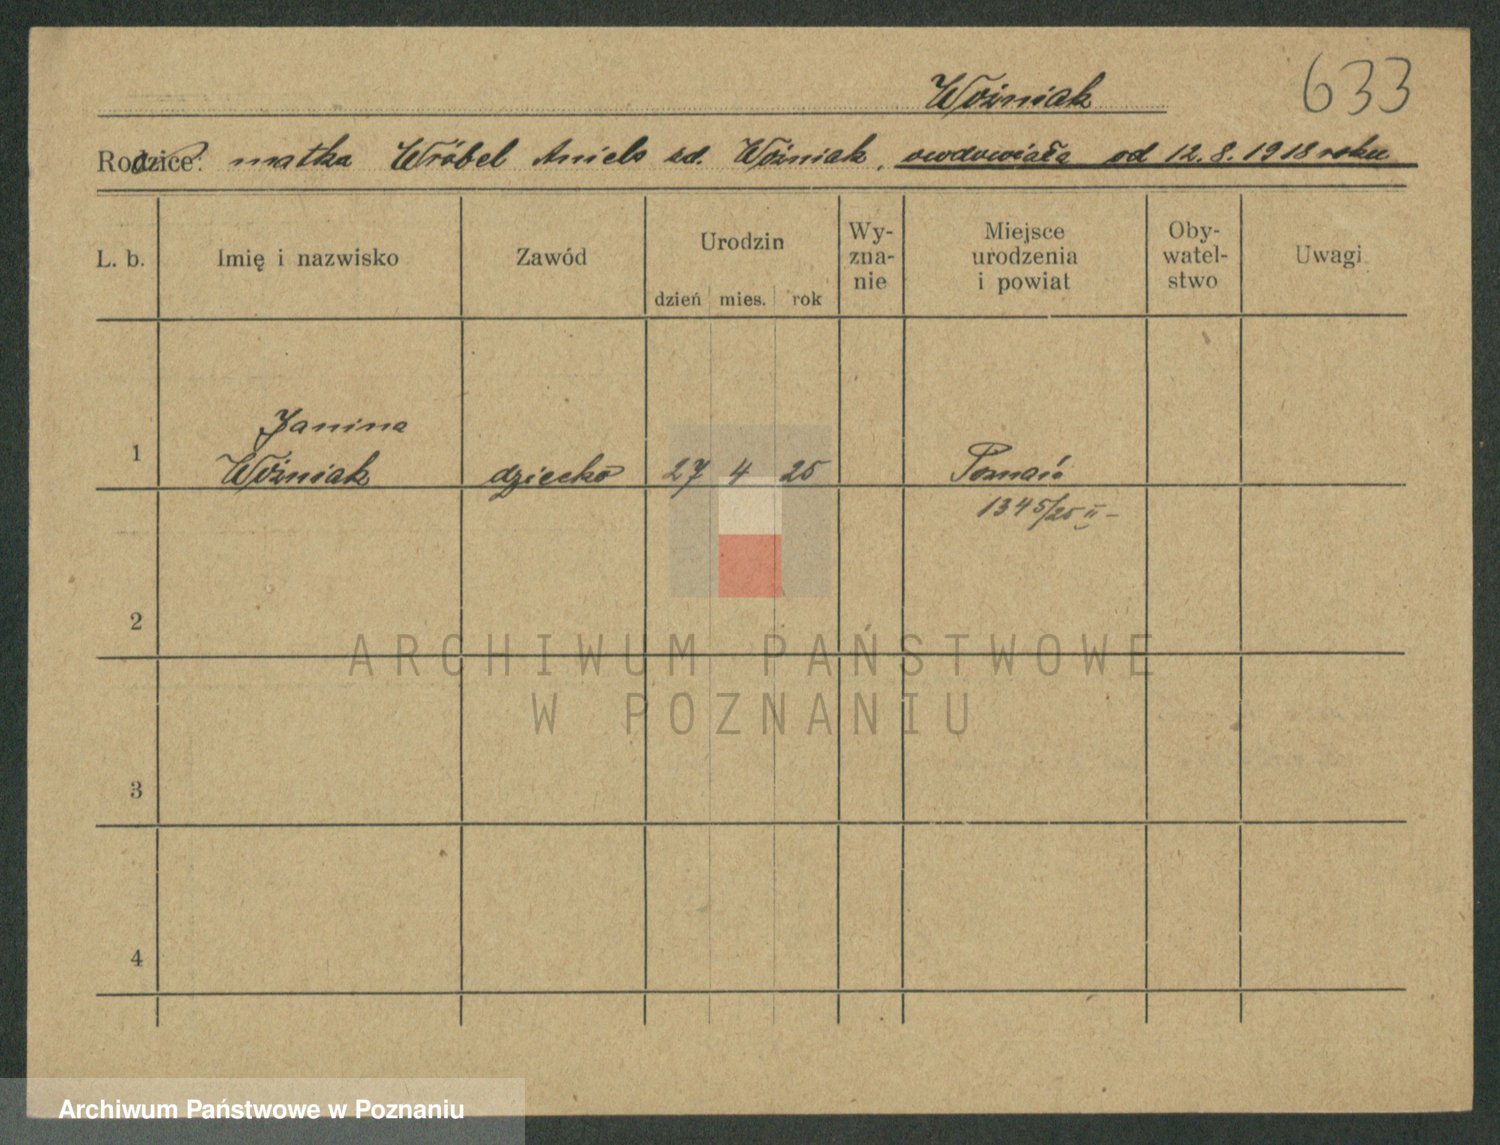 633
Woźniak
Rodzice: matka Wróbel Aniela zd. Woźniak, owdowiała od 12.8.1918 roku
L. b. Imię i nazwisko Zawód Urodzin dzień mies. rok Wy-zna-nie Miejsce urodzenia i powiat Oby-watel-stwo Uwagi
Janina
1 Woźniak dziecko 27 4 25 Poznań
1345/25 II –
2
ARCHIWUM PAŃSTWOWE
W POZNANIU
3
4
Archiwum Państwowe w Poznaniu